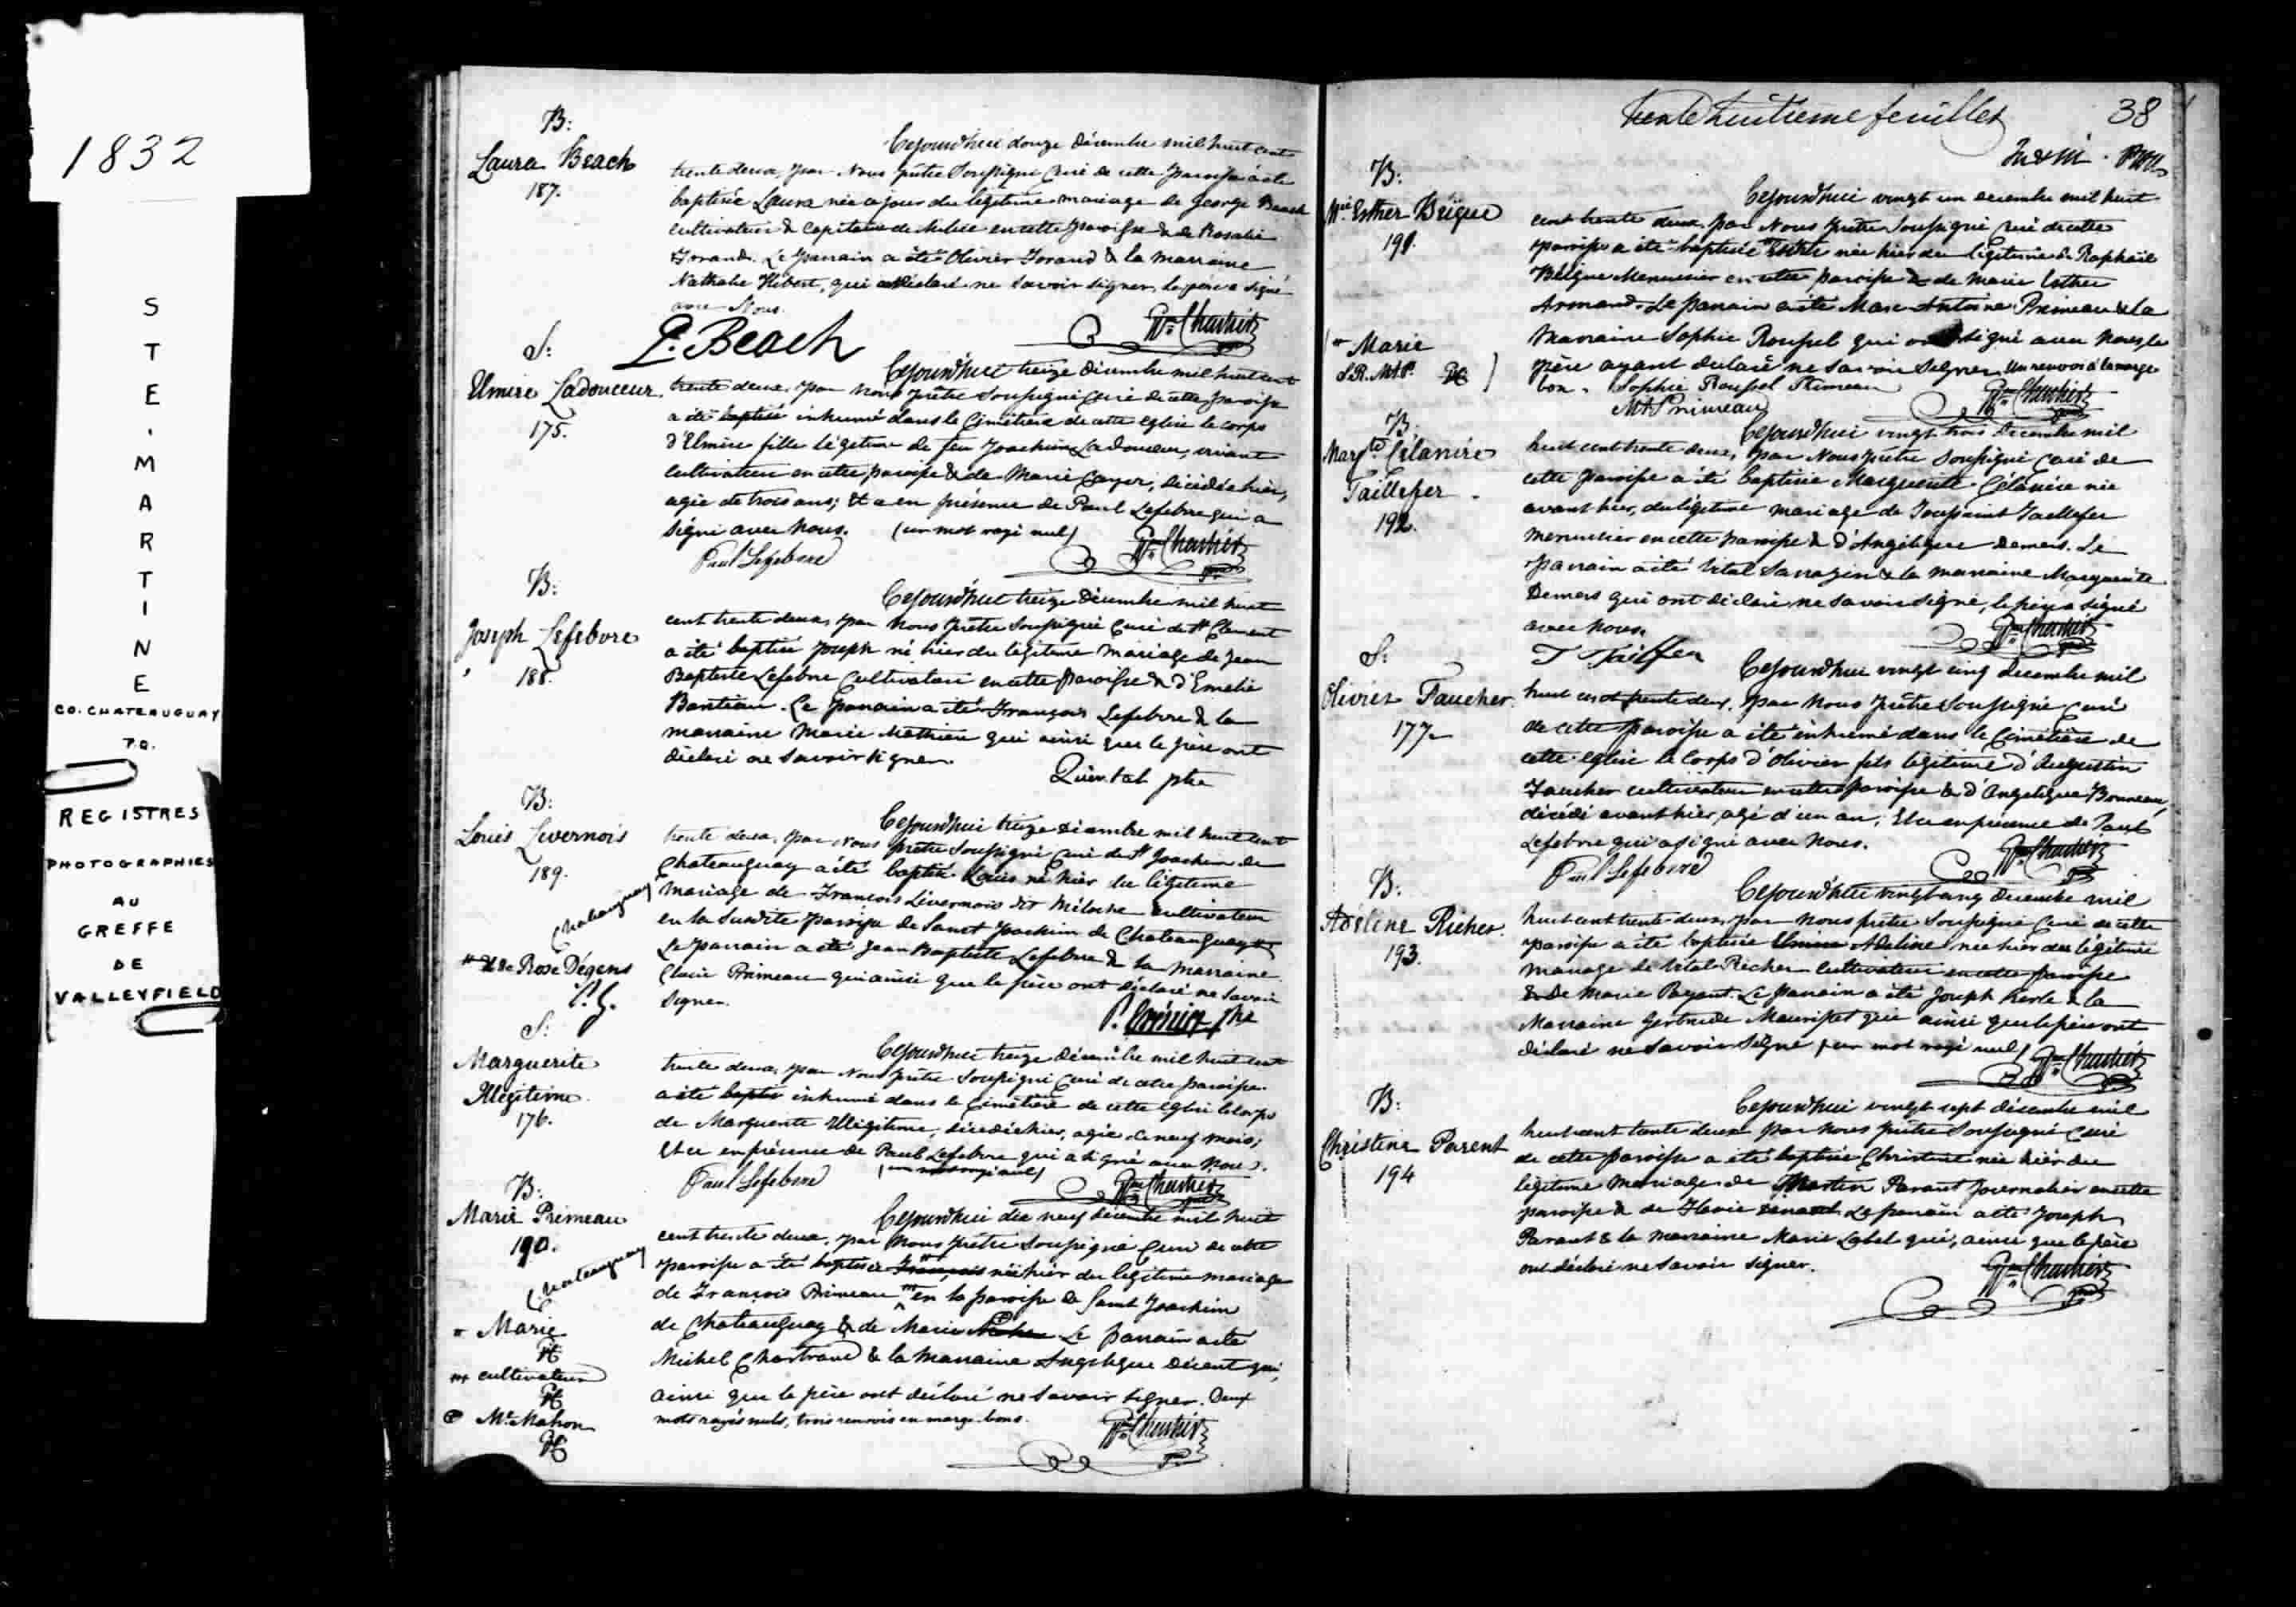 1832
STE. MARTINE
CO. CHATEAUGUAY
P.Q.
REGISTRES
PHOTOGRAPHIES
AU
GREFFE
DE
VALLEYFIELD
B:
Laura Beach
187.
Cejourd'hui douze décembre mil huit cent
trente deux, par Nous prêtre Soussigné Curé de cette paroisse a été
baptisée Laura née ce jour du légitime mariage de George Beach
cultivateur & Capitaine de Milice en cette paroisse & de Rosalie
Le parrain a été Olivier & la marraine
Nathalie Hébert, qui ont déclaré ne savoir signer, le père a signé
avec Nous.
G. Beach
S:
Elmire Ladouceur
175.
Cejourd'hui treize décembre mil huit cent
trente deux, par Nous prêtre Soussigné Curé de cette paroisse
a été baptisé inhumé dans le Cimetière de cette Eglise le corps
d'Elmire fille légitime de feu Joachim Ladouceur, vivant
cultivateur en cette paroisse & de Marie Cayer, décédée hier,
agée de trois ans; & ce en présence de Paul Lefebvre qui a
signé avec Nous. (un mot rayé nul)
Paul Lefebvre
B:
Joseph Lefebvre
188.
Cejourd'hui treize décembre mil huit
cent trente deux, par Nous prêtre Soussigné Curé de St Clement
a été baptisé Joseph né hier du légitime mariage de Jean
Baptiste Lefebvre Cultivateur en cette paroisse & d'Emelie
Le parrain a été François Lefebvre & la
marraine Marie Mathieu qui ainsi que le père ont
déclaré ne savoir signer.
Quintal ptre
B:
Louis Livernois
189.
Chateauguay
Cejourd'hui treize décembre mil huit cent
trente deux, par Nous prêtre Soussigné Curé de St Joachim de
Chateauguay a été baptisé Louis né hier du légitime
mariage de François Livernois dit Miloche cultivateur
en la susdite paroisse de Saint Joachim de Chateauguay
Le parrain a été Jean Baptiste Lefebvre & la marraine
Claire Primeau qui ainsi que le père ont déclaré ne savoir
signer.
& de Rose Dégens
P.G.
S:
Marguerite
Illégitime
176.
Cejourd'hui treize décembre mil huit cent
trente deux, par Nous prêtre Soussigné Curé de cette paroisse
a été baptisé inhumé dans le Cimetière de cette Eglise le corps
de Marguerite Illégitime, décédée hier, agée de neuf mois;
& ce en présence de Paul Lefebvre qui a signé avec Nous.
(un mot rayé nul)
Paul Lefebvre
B:
Marie Primeau
190.
Chateauguay
Cejourd'hui dix neuf décembre mil huit
cent trente deux, par Nous prêtre Soussigné Curé de cette
paroisse a été baptisée François née hier du légitime mariage
de François Primeau en la paroisse de Saint Joachim
de Chateauguay & de Marie Le parrain a été
Michel Chartrand & la marraine Angelique qui,
ainsi que le père ont déclaré ne savoir signer. Deux
mots rayés nuls, trois renvois en marge bons.
Marie
cultivateur
McMahon
Trente huitième feuillet
38
B:
Mie Esther Béïque
191.
Cejourd'hui vingt un décembre mil huit
cent trente deux, par Nous prêtre Soussigné Curé de cette
paroisse a été baptisée Esther née hier du légitime de Raphaël
Béïque Menuisier en cette paroisse & de Marie Esther
Armand. Le parrain a été Marc Antoine Primeau & la
Marraine Sophie Roussel qui ont signé avec Nous, le
père ayant déclaré ne savoir signer. Un renvoi à la marge
bon.
Sophie Roussel Primeau
MAPrimeau
Marie
S.R. M.A.P.
B:
Margte Célanire
Taillefer
192.
Cejourd'hui vingt trois décembre mil
huit cent trente deux, par Nous prêtre Soussigné Curé de
cette paroisse a été baptisée Marguerite Célanire née
avant hier, du légitime mariage de Toussaint Taillefer
menuisier en cette paroisse & d'Angélique Demers. Le
parrain a été Vital Sarrazin & la marraine Marguerite
Demers qui ont déclaré ne savoir signé, le père a signé
avec Nous.
T Tailfer
S:
Olivier Faucher
177.
Cejourd'hui vingt cinq décembre mil
huit cent trente deux, par Nous prêtre Soussigné Curé
de cette paroisse a été inhumé dans le Cimetière de
cette Eglise le corps d'Olivier fils légitime d'Augustin
Faucher cultivateur en cette paroisse & d'Angelique Bonneau,
décédé avant hier, agé d'un an; & ce en présence de Paul
Lefebvre qui a signé avec Nous.
Paul Lefebvre
B:
Adéline Richer
193.
Cejourd'hui vingt cinq décembre mil
huit cent trente deux, par Nous prêtre Soussigné Curé de cette
paroisse a été baptisée Elmire Adeline née hier du légitime
mariage de Vital Richer Cultivateur en cette paroisse
& de Marie Payant. Le parrain a été Joseph & la
Marraine Gertrude qui ainsi que le père ont
déclaré ne savoir signé (un mot rayé nul)
B:
Christine Parent
194
Cejourd'hui vingt sept décembre mil
huit cent trente deux par Nous prêtre Soussigné Curé
de cette paroisse a été baptisée Christine née hier du
légitime mariage de Martin Parant Journalier en cette
paroisse & de Flavie Le parrain a été Joseph
Parant & la marraine Marie Label qui, ainsi que le père
ont déclaré ne savoir signer.